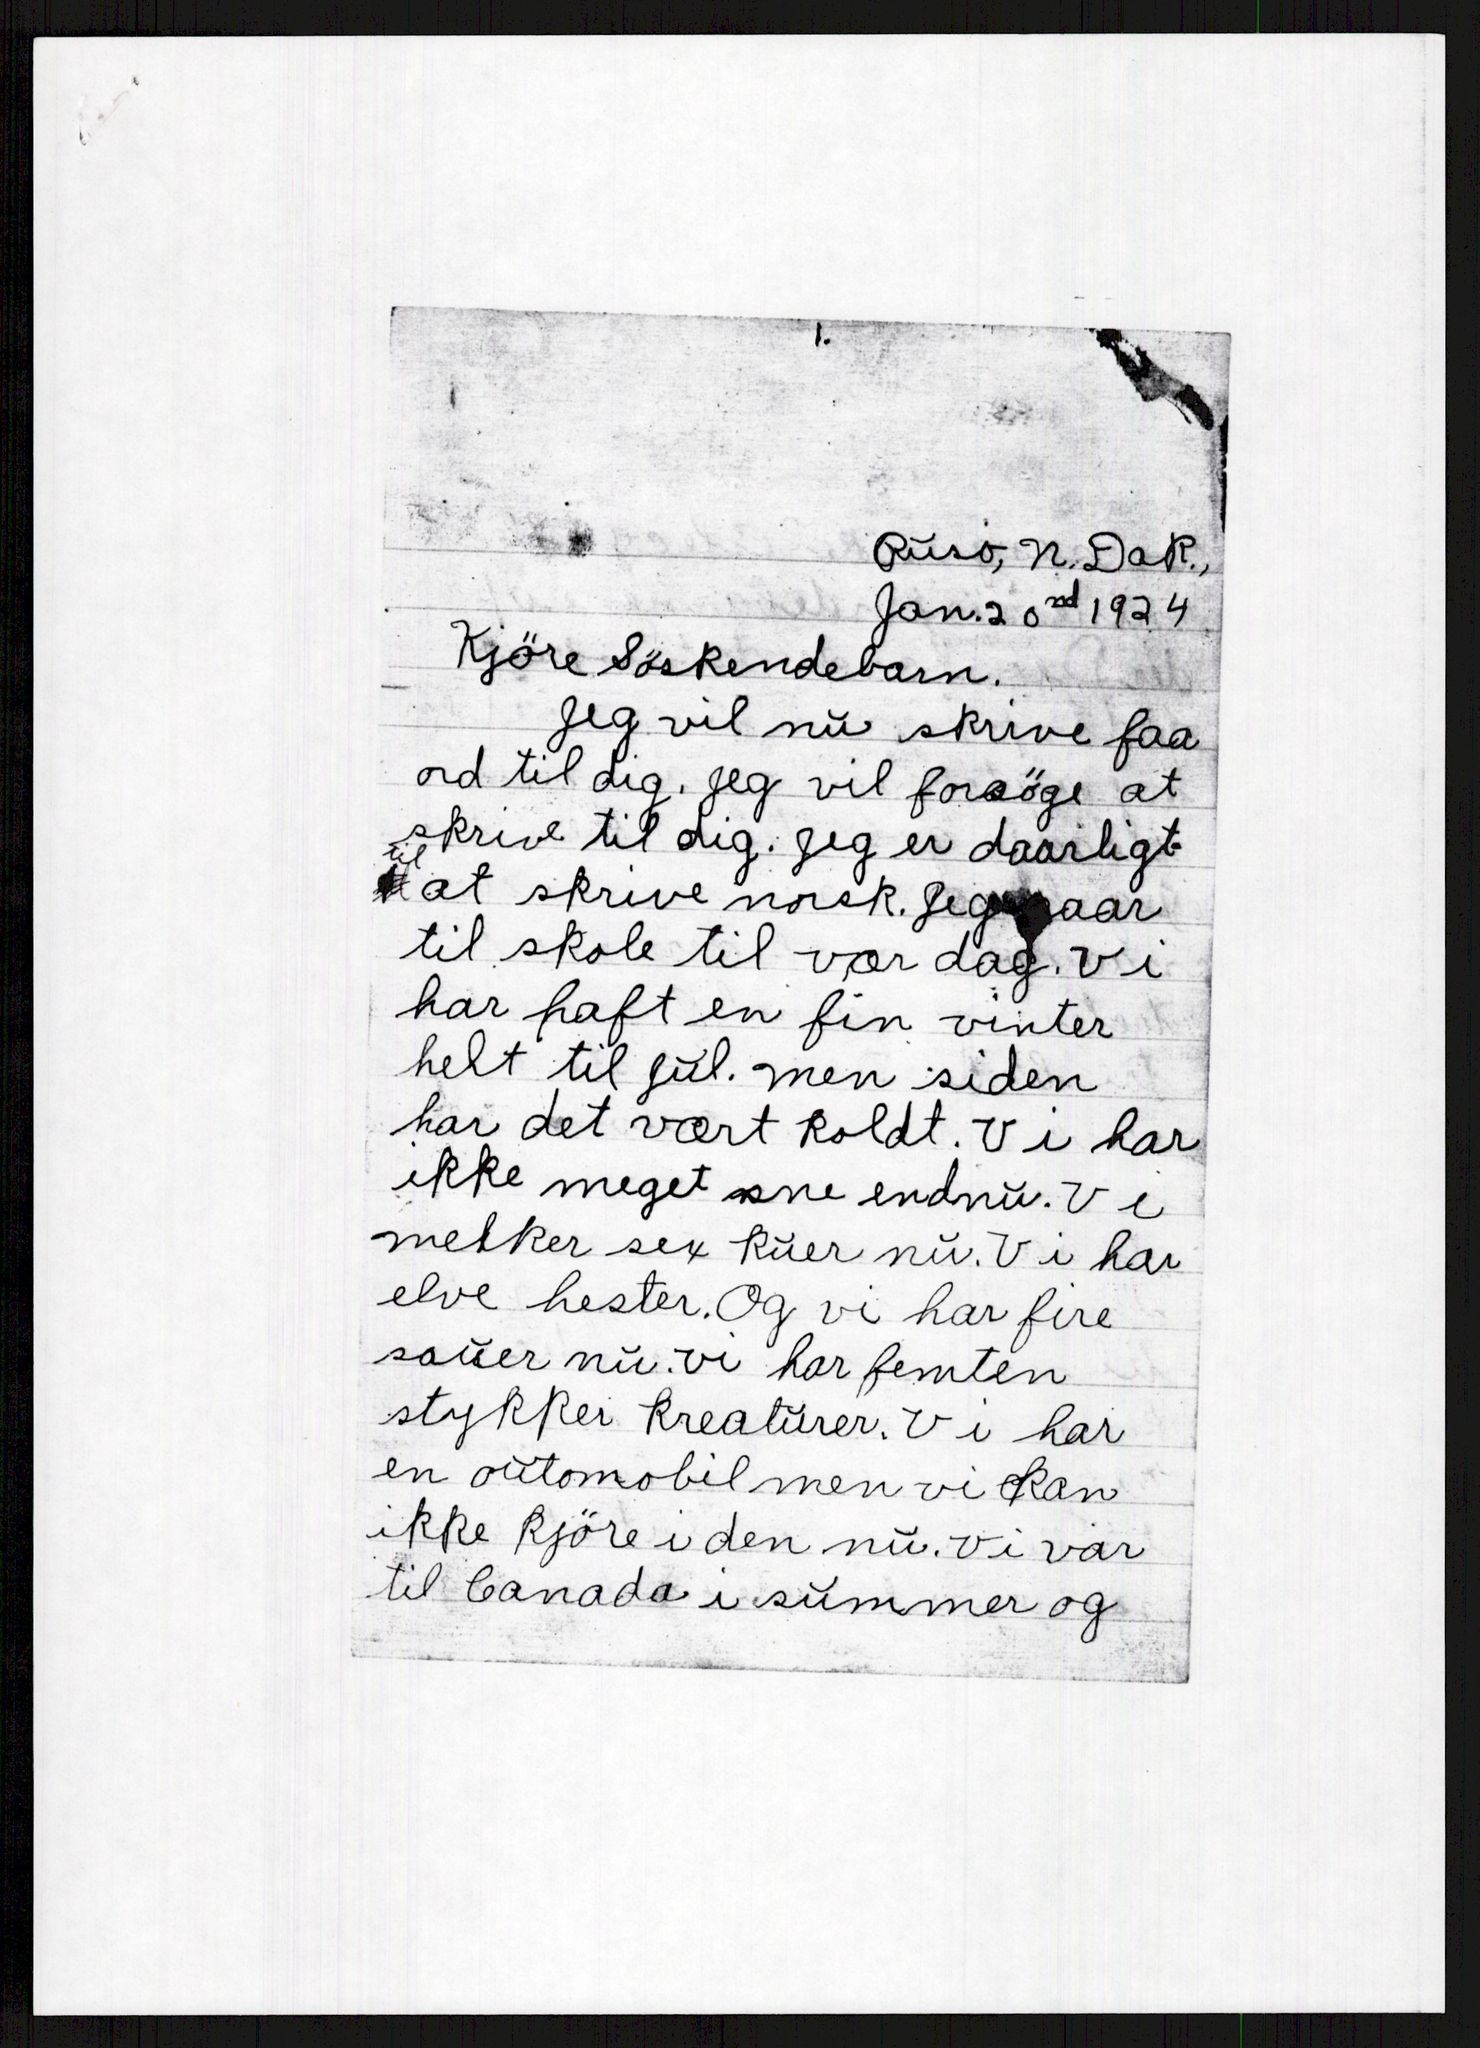 1.
Ruso, N. Dak.,
Jan. 20nd 1924
Kjöre Söskendebarn.
Jeg vil nu skrive faa
ord til dig. Jeg vil forsöge at
skrive til dig. Jeg er daarligt
til at skrive norsk. Jeg gaar
til skole til vær dag. Vi
har haft en fin vinter
helt til Jul. men siden
har det vært koldt. Vi har
ikke meget sne endnu. Vi
melker sex kuer nu. Vi har
elve hester. Og vi har fire
sauer nu. Vi har femten
stykker kreaturer. Vi har
en automobil men vi kan
ikke kjöre i den nu. Vi var
til Canada i summer og